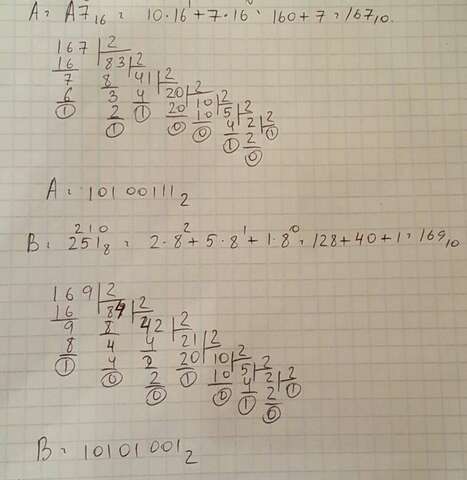 A = A7₁₆ = 10·16¹+7·16⁰ = 160+7 = 167₁₀.
167 | 2
16 83 | 2
7 8 41 | 2
6 3 4 20 | 2
1 2 1 20 10 | 2
1 0 10 5 | 2
0 4 2 | 2
1 2 1
0
A = 10100111₂
2 1 0
B = 251₈ = 2·8²+5·8¹+1·8⁰ = 128+40+1 = 169₁₀
169 | 2
16 84 | 2
9 8 42 | 2
8 4 4 21 | 2
1 4 2 20 10 | 2
0 2 1 10 5 | 2
0 0 4 2 | 2
1 2 1
0
B = 10101001₂